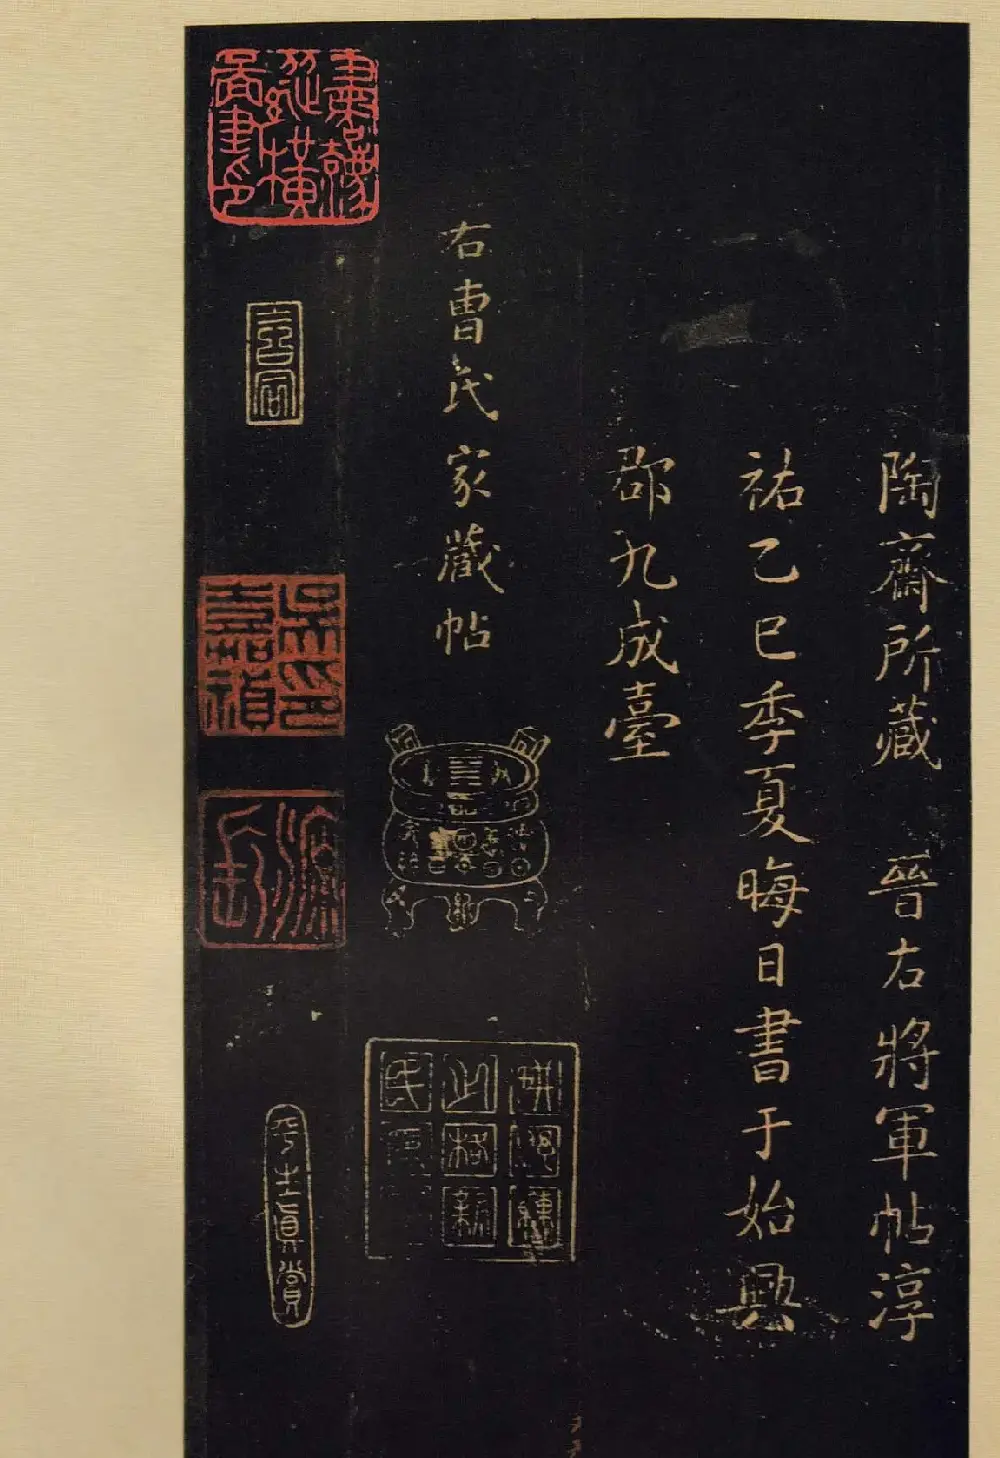 陶齋所藏 晉右將軍帖淳
祐乙巳季夏晦日書于始興
郡九成臺
右曹氏家藏帖
吳印嘉禎
平生真賞